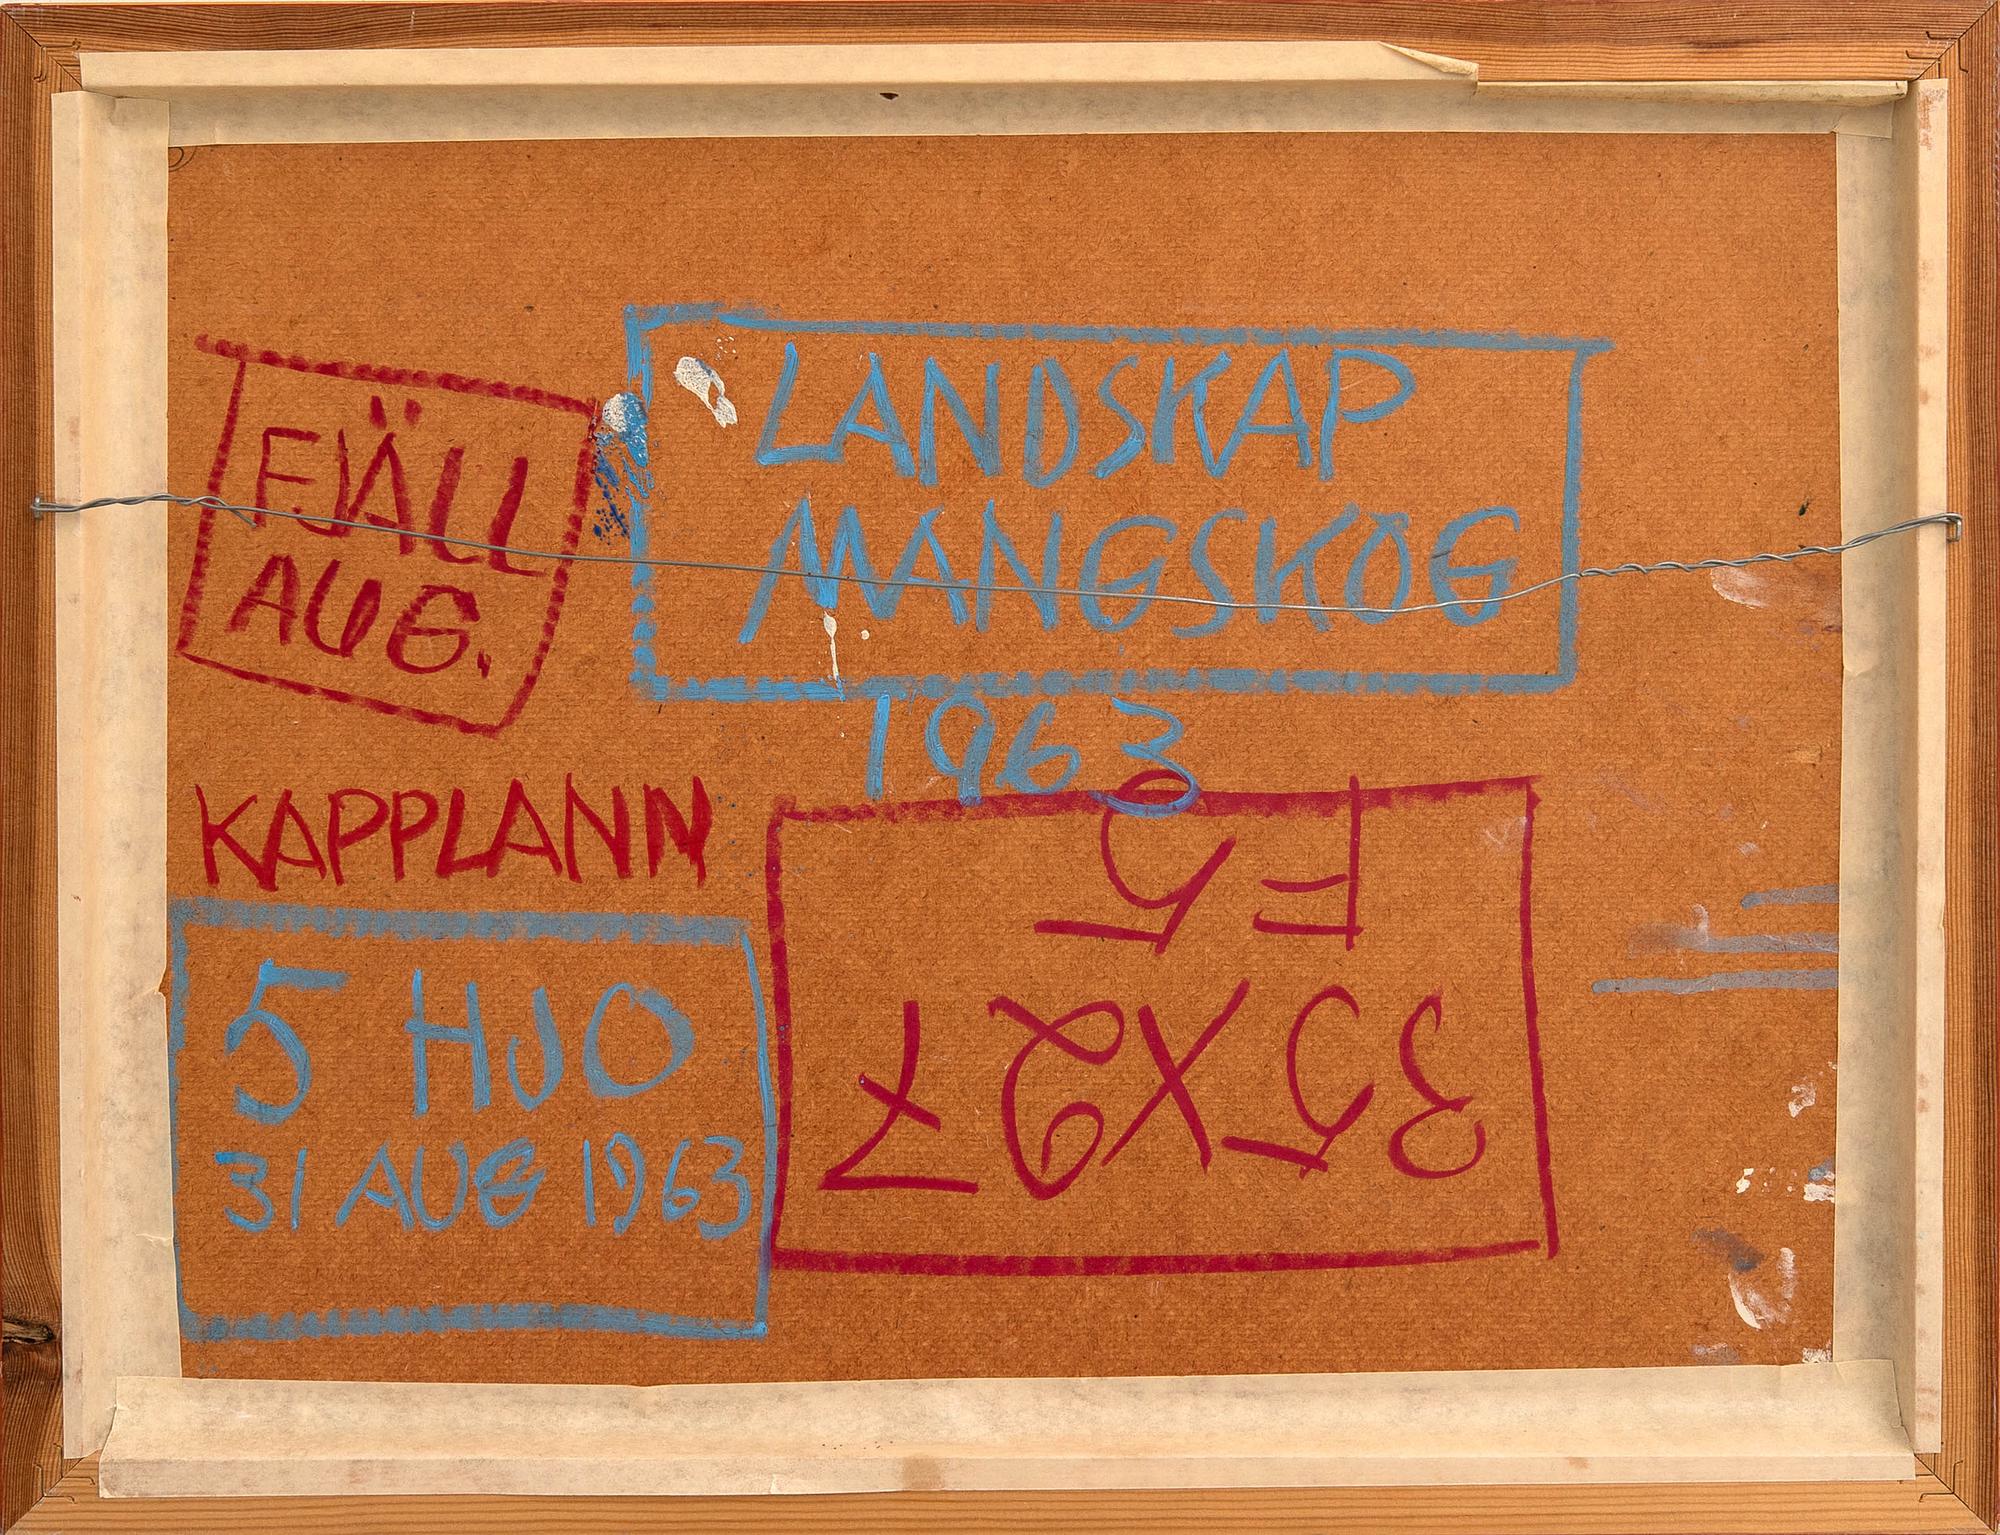 LANDSKAP
MANGSKOG
1963
FJÄLL
AUG.
KAPPLANN
5 HJO
31 AUG 1963
35X27
F5